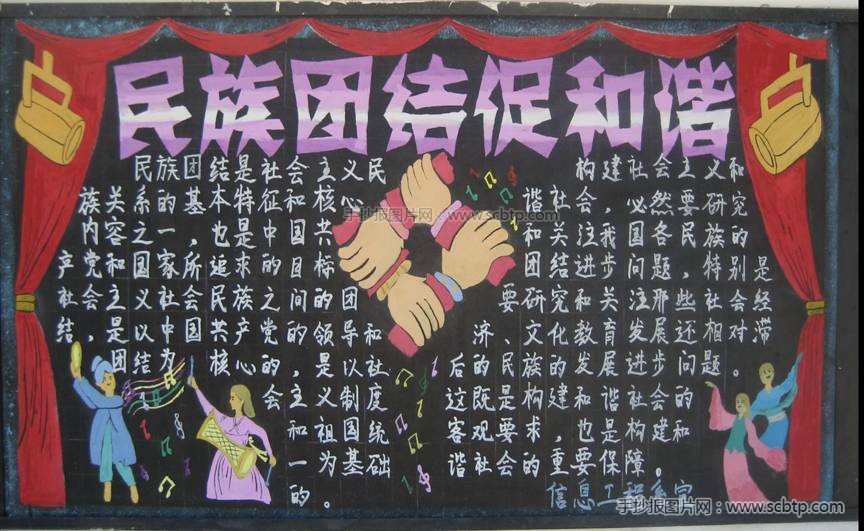 民族团结促和谐
民族团结是社会主义民
族关系的基本特征和核心
内容之一,也是中国共
产党和国家所追求的目标
社会主义社会民族之间的团
结,是以中国共产党的领导和
团结为核心,是以社
会主义制度
和祖国统
一为基础
的。
构建社会主义和
谐社会,必然要研究
和关注我国各民族的
团结进步问题,特别是
要研究和关注那些社会经
济、文化教育发展还相对滞
后的民族的发展进步问题。
这既是构建和谐社会的
客观要求,也是构建和
谐社会的重要保障。
信息工程系宣
手抄报图片网:www.scbtp.com
手抄报图片网:www.scbtp.com